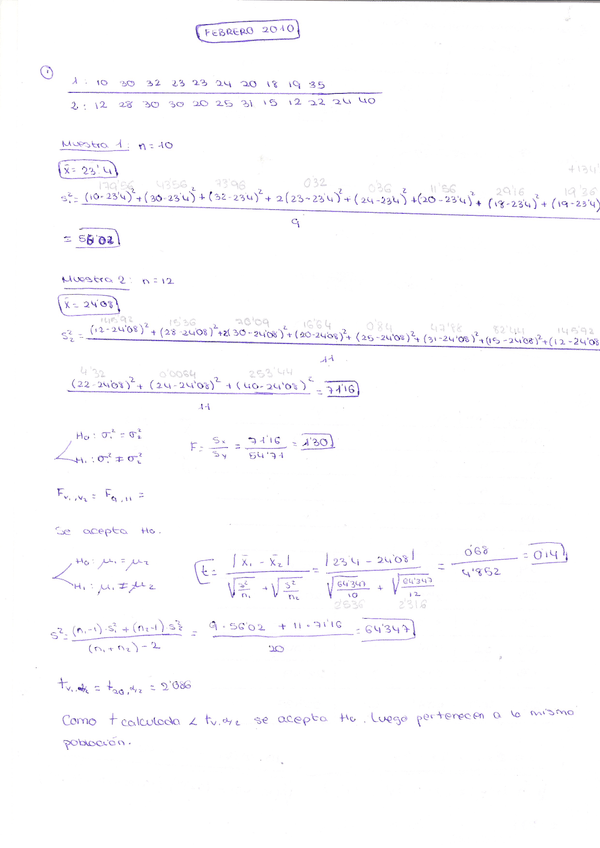 FEBRERO 2010
1
1: 10 30 32 23 23 24 20 18 19 35
2: 12 28 30 30 20 25 31 15 12 22 24 40
Muestra 1: n=10
x̄ = 23'4
+134'
179'56 43'56 73'96 0'32 0'36 11'56 29'16 19'36
S₁² = (10-23'4)² + (30-23'4)² + (32-23'4)² + 2(23-23'4)² + (24-23'4)² + (20-23'4)² + (18-23'4)² + (19-23'4)
9
= 56'02
Muestra 2: n=12
x̄ = 24'08
145'92 15'36 70'09 16'64 0'84 47'88 82'44 145'92
S₂² = (12-24'08)² + (28-24'08)² + 2(30-24'08)² + (20-24'08)² + (25-24'08)² + (31-24'08)² + (15-24'08)² + (12-24'08
11
4'32 0'0064 253'44
(22-24'08)² + (24-24'08)² + (40-24'08)² = 71'16
11
H₀: σ₁² = σ₂²
H₁: σ₁² ≠ σ₂²
F = Sₓ/Sᵧ = 71'16/54'71 = 1'30
Fv₁,v₂ = F9,11 =
Se acepta H₀.
H₀: μ₁ = μ₂
H₁: μ₁ ≠ μ₂
t = |x̄₁ - x̄₂| / (√(s²/n₁) + √(s²/n₂)) = |23'4 - 24'08| / (√(64'347/10) + √(64'347/12)) = 0'68/4'852 = 0'14
2'536 2'316
S² = ((n₁-1)·s₁² + (n₂-1)·s₂²) / ((n₁+n₂)-2) = (9·56'02 + 11·71'16) / 20 = 64'347
tv,α/2 = t20,α/2 = 2'086
Como t calculada < tv,α/2 se acepta H₀. Luego pertenecen a la misma
población.